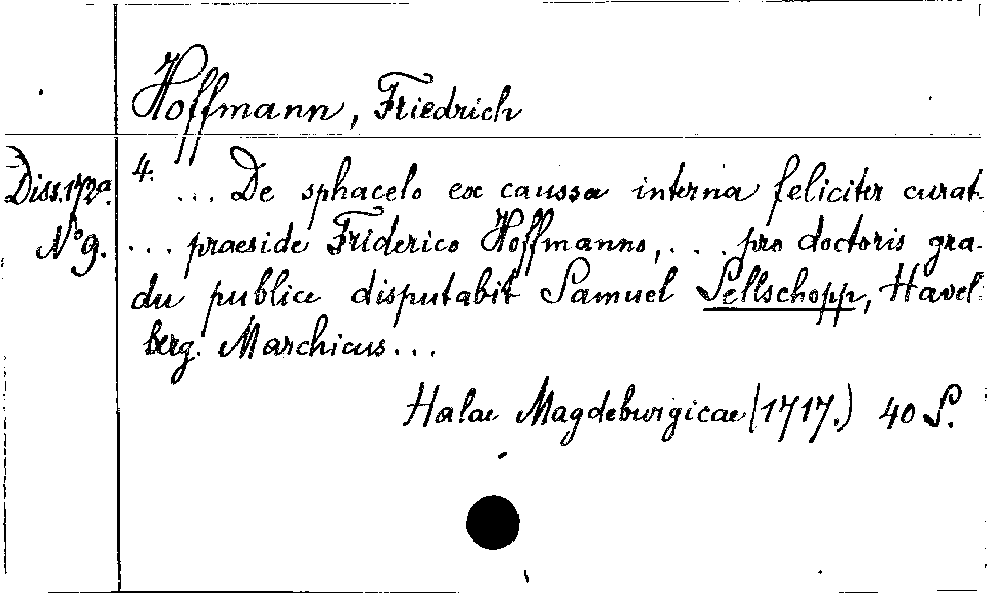 Hoffmann, Friedrich
Diss. 172a. 4. ... De sphacelo ex caussa interna feliciter curat
No 9. ... praeside Friderico Hoffmanno, ... pro doctoris gra-
du publice disputabit Samuel Sellschopp, Havel-
berg. Marchicus ...
Halae Magdeburgicae (1717.) 40 S.